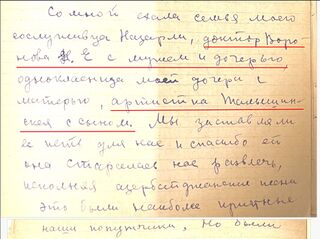 Со мной ехала семья моего
сослуживца Назарли, доктор Воро
нова Н. Е с мужем и дочерью
одноклассница моей дочери с
матерью, артистка Жалышин-
ская с сыном. Мы заставляли
ее петь для нас и спасибо ей
она старалась нас развлечь,
исполняя азербайджанские песни
Это были наиболее приятные
наши попутчики, Но были